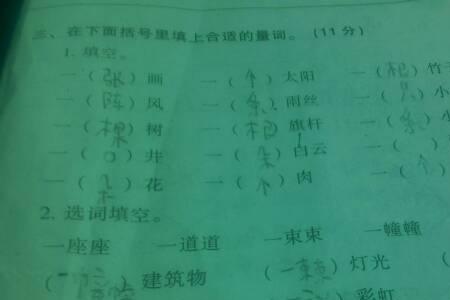 三、在下面括号里填上合适的量词。(11分)
1. 填空。
一(张)画 一(个)太阳 一(根)竹
一(阵)风 一(条)雨丝 一( )小
一(棵)树 一(根)旗杆 一(条)
一(口)井 一(朵)白云 一( )
一(朵)花 一(个)肉 一(个)
2. 选词填空。
一座座 一道道 一束束 一幢幢
( )建筑物 (一束束)灯光
彩虹